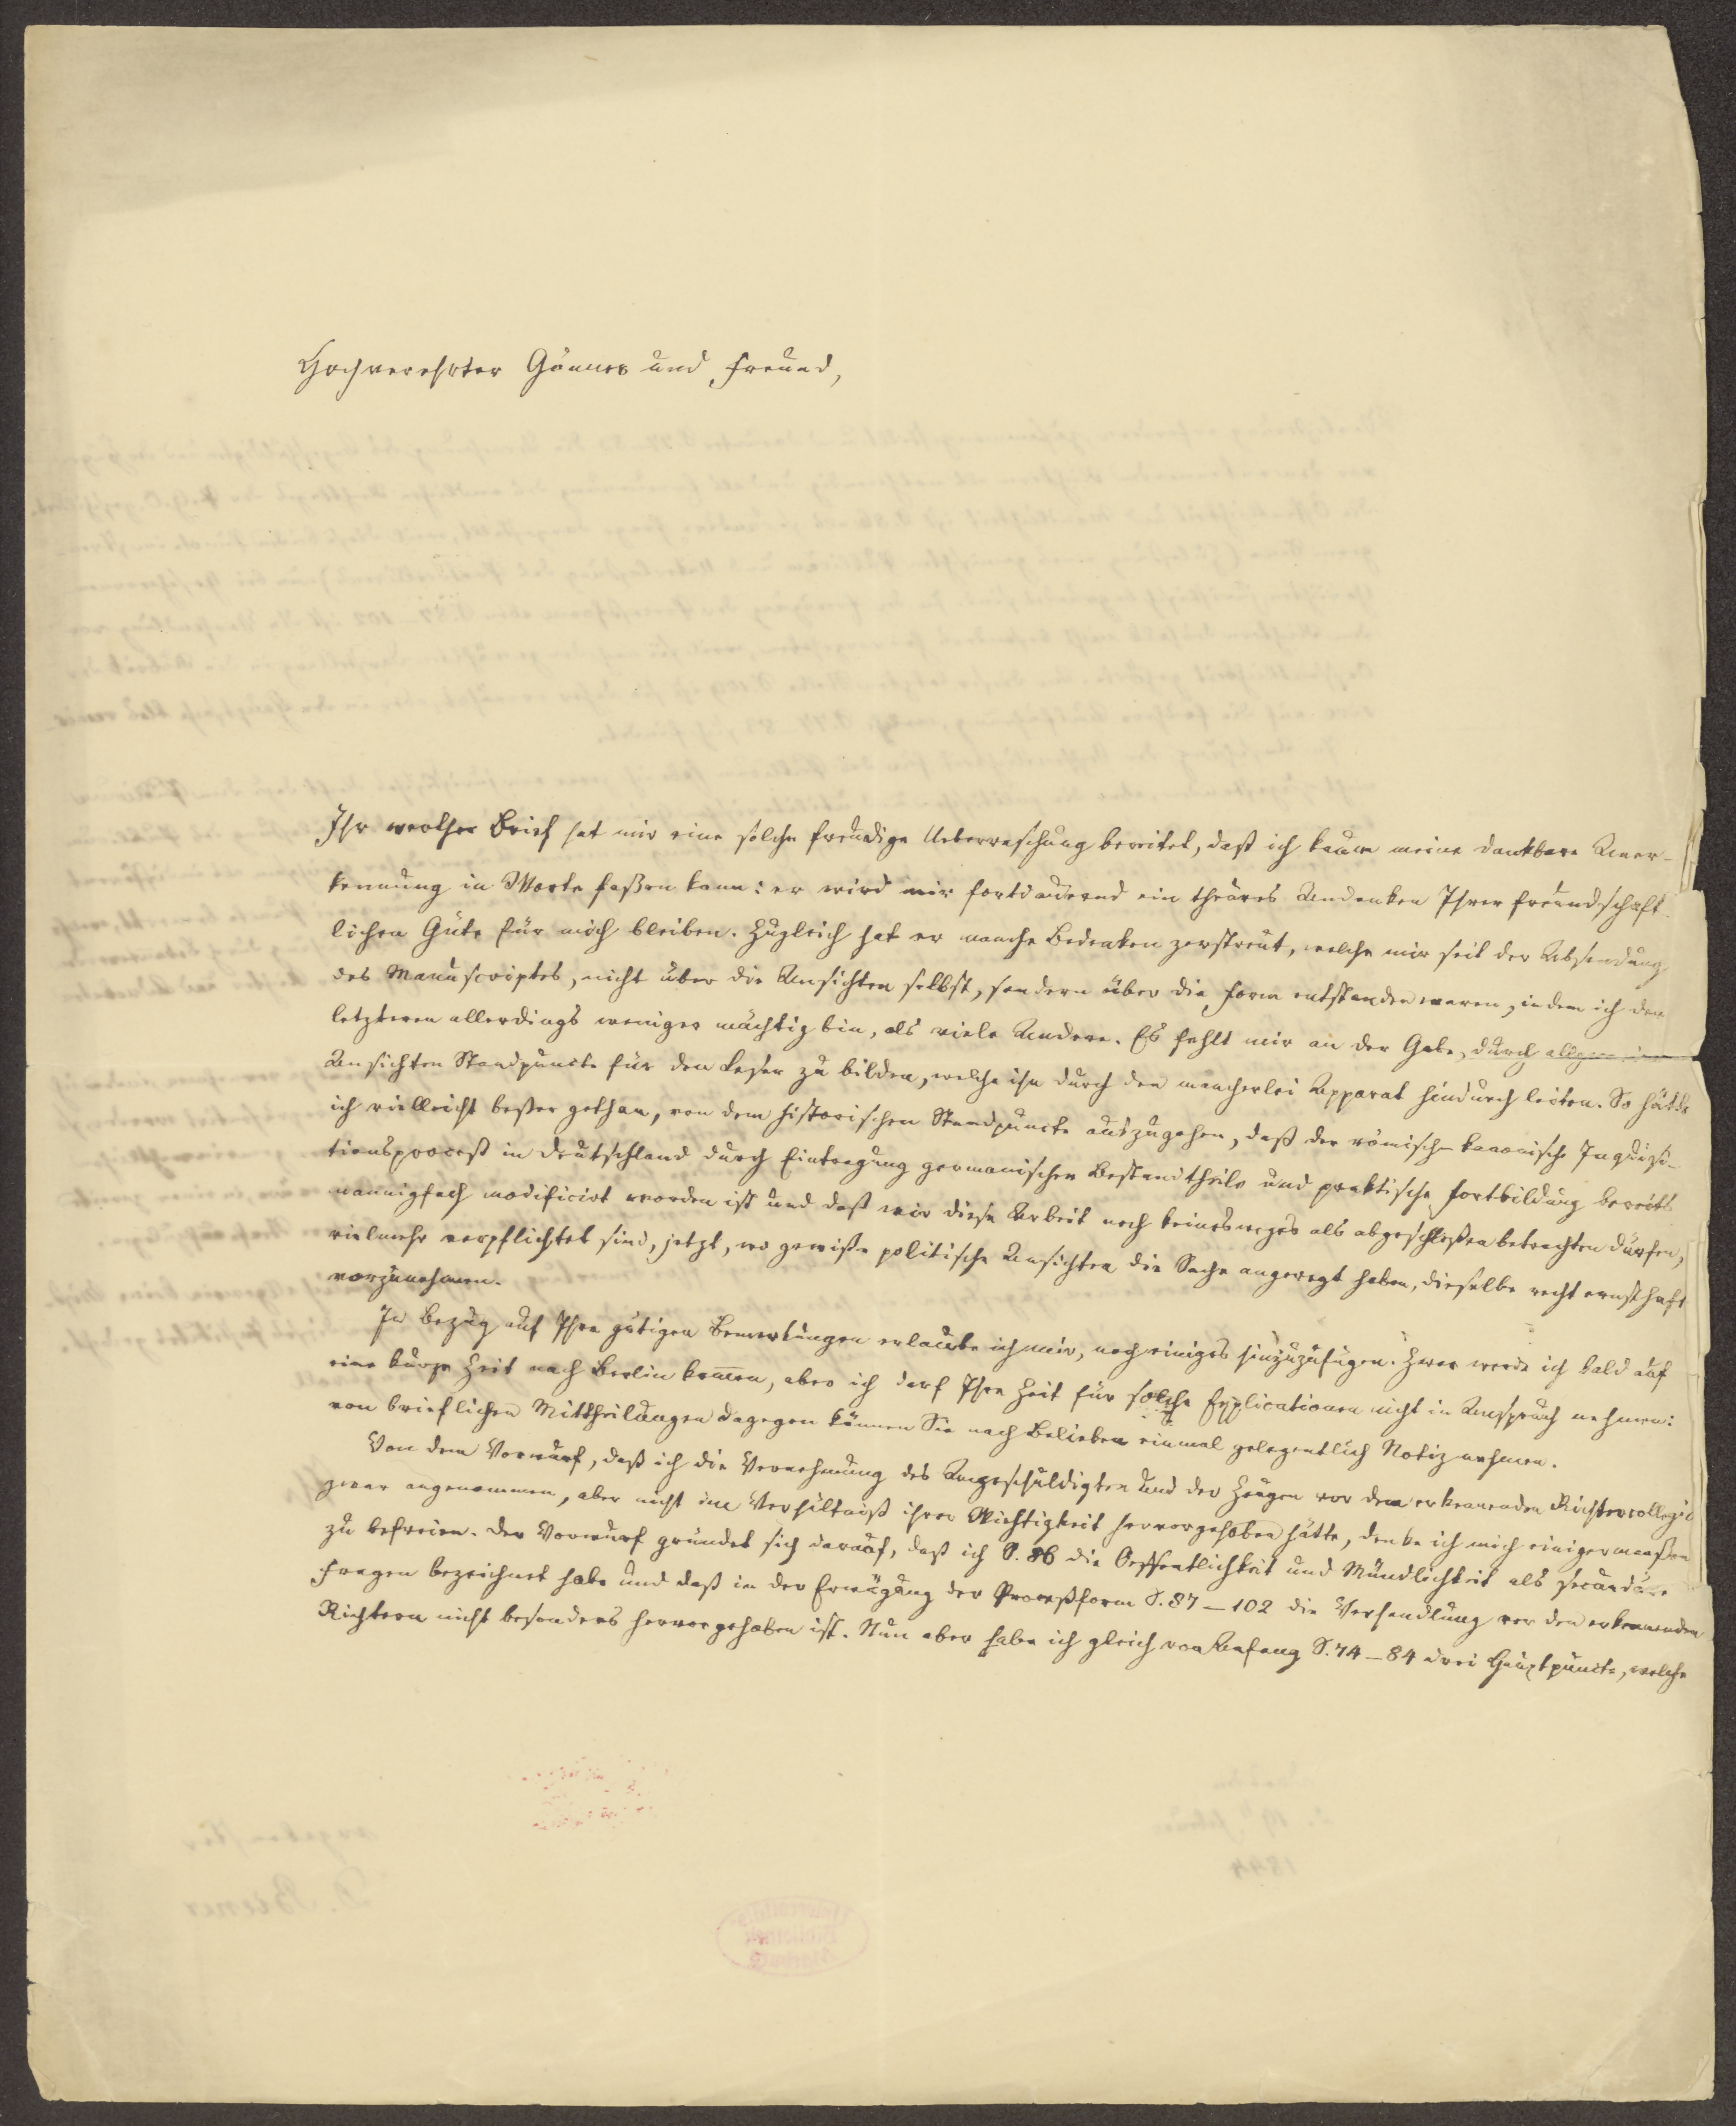 Hochverehrter Gönner und Freund,
Ihr werther Brief hat mir eine solche freudige Ueberraschung bereitet, daß ich kaum meine dankbare Aner-
kennung in Worte faßen kann: er wird mir fortdauernd ein theures Andenken Ihrer freundschaft-
lichen Güte für mich bleiben. Zugleich hat er manche Bedenken zerstreut, welche mir seit der Absendung
des Manuscriptes, nicht über die Ansichten selbst, sondern über die Form entstanden waren, indem ich der
letzteren allerdings weniger mächtig bin, als viele Andere. Es fehlt mir an der Gabe, durch allgemeine
Ansichten Standpuncte für den Leser zu bilden, welche ihn durch den mancherlei Apparat hindurch leiten. So hätte
ich vielleicht beßer gethan, von dem historischen Standpuncte auszugehen, daß der römisch-kanonische Inquisi-
tionsproceß in Deutschland durch Eintragung germanischer Bestandtheile und praktische Fortbildung bereits
mannigfach modificirt worden ist und daß wir diese Arbeit noch keinesweges als abgeschloßen betrachten dürfen,
vielmehr verpflichtet sind, jetzt, wo gewiße politische Ansichten die Sache angeregt haben, dieselbe recht ernsthaft
vorzunehmen.
In Bezug auf Ihre gütigen Bemerkungen erlaube ich mir, noch einiges hinzuzufügen. Zwar werde ich bald auf
eine kurze Zeit nach Berlin kommen, aber ich darf Ihre Zeit für solche Explicationen nicht in Anspruch nehmen:
von brieflichen Mittheilungen dagegen können Sie nach Belieben einmal gelegentlich Notiz nehmen.
Von dem Vorwurf, daß ich die Vernehmung des Angeschuldigten und der Zeugen vor dem erkennenden Richtercollegio
zwar angenommen, aber nicht im Verhältniß ihrer Wichtigkeit hervorgehoben hätte, denke ich mich einigermaaßen
zu befreien. Der Vorwurf gründet sich darauf, daß ich S. 86 die Oeffentlichkeit und Mündlichkeit als secundäre
Fragen bezeichnet habe und daß in der Erwägung der Proceßform S. 87–102 die Verhandlung vor den erkennenden
Richtern nicht besonders hervorgehoben ist. Nun aber habe ich gleich von Anfang S. 74–84 drei Hauptpuncte, welche